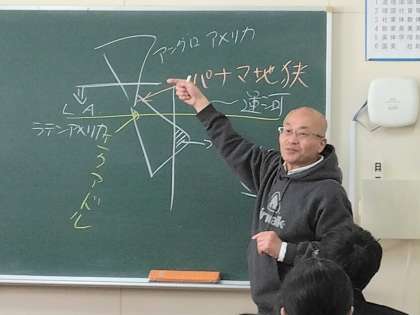 アングロアメリカ
パナマ地狭
運河
L A
ラテンアメリカ
エクアドル
日